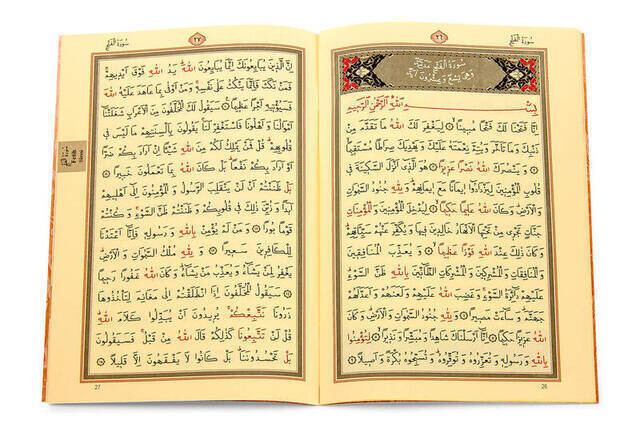 سُورَةُ الْفَتْحِ
٢٦
سُورَةُ الْفَتْحِ مَدَنِيَّةٌ
وَهِىَ تِسْعٌ وَعِشْرُونَ اٰيَةً
بِسْمِ اللّٰهِ الرَّحْمٰنِ الرَّحِيمِ
اِنَّا فَتَحْنَا لَكَ فَتْحًا مُبِينًا ۝ لِيَغْفِرَ لَكَ اللّٰهُ مَا تَقَدَّمَ مِنْ
ذَنْبِكَ وَمَا تَاَخَّرَ وَيُتِمَّ نِعْمَتَهُ عَلَيْكَ وَيَهْدِيَكَ صِرَاطًا مُسْتَقِيمًا
۝ وَيَنْصُرَكَ اللّٰهُ نَصْرًا عَزِيزًا ۝ هُوَ الَّذِى اَنْزَلَ السَّكِينَةَ فِى
قُلُوبِ الْمُؤْمِنِينَ لِيَزْدَادُوا اِيمَانًا مَعَ اِيمَانِهِمْ وَلِلّٰهِ جُنُودُ السَّمٰوَاتِ
وَالْاَرْضِ وَكَانَ اللّٰهُ عَلِيمًا حَكِيمًا ۝ لِيُدْخِلَ الْمُؤْمِنِينَ وَالْمُؤْمِنَاتِ
جَنَّاتٍ تَجْرِى مِنْ تَحْتِهَا الْاَنْهَارُ خَالِدِينَ فِيهَا وَيُكَفِّرَ عَنْهُمْ سَيِّـَٔاتِهِمْ
وَكَانَ ذٰلِكَ عِنْدَ اللّٰهِ فَوْزًا عَظِيمًا ۝ وَيُعَذِّبَ الْمُنَافِقِينَ
وَالْمُنَافِقَاتِ وَالْمُشْرِكِينَ وَالْمُشْرِكَاتِ الظَّانِّينَ بِاللّٰهِ ظَنَّ السَّوْءِ
عَلَيْهِمْ دَائِرَةُ السَّوْءِ وَغَضِبَ اللّٰهُ عَلَيْهِمْ وَلَعَنَهُمْ وَاَعَدَّ لَهُمْ
جَهَنَّمَ وَسَاءَتْ مَصِيرًا ۝ وَلِلّٰهِ جُنُودُ السَّمٰوَاتِ وَالْاَرْضِ وَكَانَ
اللّٰهُ عَزِيزًا حَكِيمًا ۝ اِنَّا اَرْسَلْنَاكَ شَاهِدًا وَمُبَشِّرًا وَنَذِيرًا ۝ لِتُؤْمِنُوا
بِاللّٰهِ وَرَسُولِهِ وَتُعَزِّرُوهُ وَتُوَقِّرُوهُ وَتُسَبِّحُوهُ بُكْرَةً وَاَصِيلًا
26
سُورَةُ الْفَتْحِ
٢٧
اِنَّ الَّذِينَ يُبَايِعُونَكَ اِنَّمَا يُبَايِعُونَ اللّٰهَ يَدُ اللّٰهِ فَوْقَ اَيْدِيهِمْ
فَمَنْ نَكَثَ فَاِنَّمَا يَنْكُثُ عَلٰى نَفْسِهِ وَمَنْ اَوْفٰى بِمَا عَاهَدَ عَلَيْهُ اللّٰهَ
فَسَيُؤْتِيهِ اَجْرًا عَظِيمًا ۝ سَيَقُولُ لَكَ الْمُخَلَّفُونَ مِنَ الْاَعْرَابِ شَغَلَتْنَا
اَمْوَالُنَا وَاَهْلُونَا فَاسْتَغْفِرْ لَنَا يَقُولُونَ بِاَلْسِنَتِهِمْ مَا لَيْسَ فِى
قُلُوبِهِمْ قُلْ فَمَنْ يَمْلِكُ لَكُمْ مِنَ اللّٰهِ شَيْـًٔا اِنْ اَرَادَ بِكُمْ ضَرًّا
اَوْ اَرَادَ بِكُمْ نَفْعًا بَلْ كَانَ اللّٰهُ بِمَا تَعْمَلُونَ خَبِيرًا ۝
بَلْ ظَنَنْتُمْ اَنْ لَنْ يَنْقَلِبَ الرَّسُولُ وَالْمُؤْمِنُونَ اِلٰى اَهْلِيهِمْ
اَبَدًا وَزُيِّنَ ذٰلِكَ فِى قُلُوبِكُمْ وَظَنَنْتُمْ ظَنَّ السَّوْءِ وَكُنْتُمْ
قَوْمًا بُورًا ۝ وَمَنْ لَمْ يُؤْمِنْ بِاللّٰهِ وَرَسُولِهِ فَاِنَّا اَعْتَدْنَا
لِلْكَافِرِينَ سَعِيرًا ۝ وَلِلّٰهِ مُلْكُ السَّمٰوَاتِ وَالْاَرْضِ
يَغْفِرُ لِمَنْ يَشَاءُ وَيُعَذِّبُ مَنْ يَشَاءُ وَكَانَ اللّٰهُ غَفُورًا رَحِيمًا
۝ سَيَقُولُ الْمُخَلَّفُونَ اِذَا انْطَلَقْتُمْ اِلٰى مَغَانِمَ لِتَاْخُذُوهَا
ذَرُونَا نَتَّبِعْكُمْ يُرِيدُونَ اَنْ يُبَدِّلُوا كَلَامَ اللّٰهِ
قُلْ لَنْ تَتَّبِعُونَا كَذٰلِكُمْ قَالَ اللّٰهُ مِنْ قَبْلُ فَسَيَقُولُونَ
بَلْ تَحْسُدُونَنَا بَلْ كَانُوا لَا يَفْقَهُونَ اِلَّا قَلِيلًا ۝
27
سُورَةُ الْفَتْحِ
Fetih
Sûresi